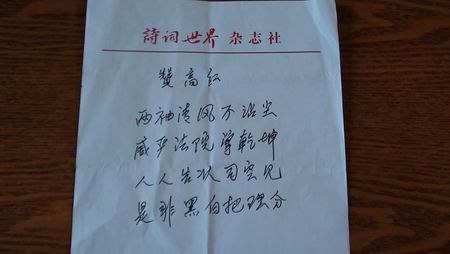 詩词世界 杂志社
赞高红
两袖清风不沾尘
威严法院掌乾坤
人人告状司空见
是非黑白把理分